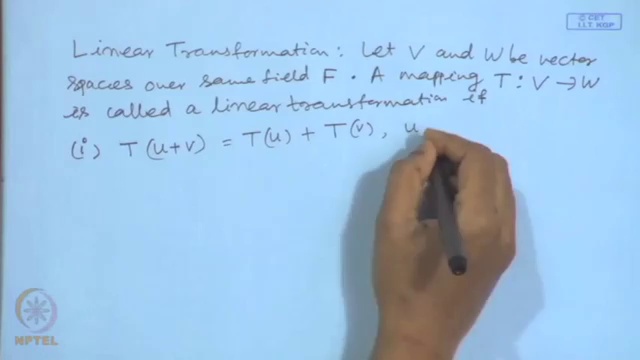 © CET
I.I.T. KGP
Linear Transformation: Let V and W be vector
spaces over same field F. A mapping T: V → W
is called a linear transformation if
(i) T(u+v) = T(u) + T(v), u
NPTEL